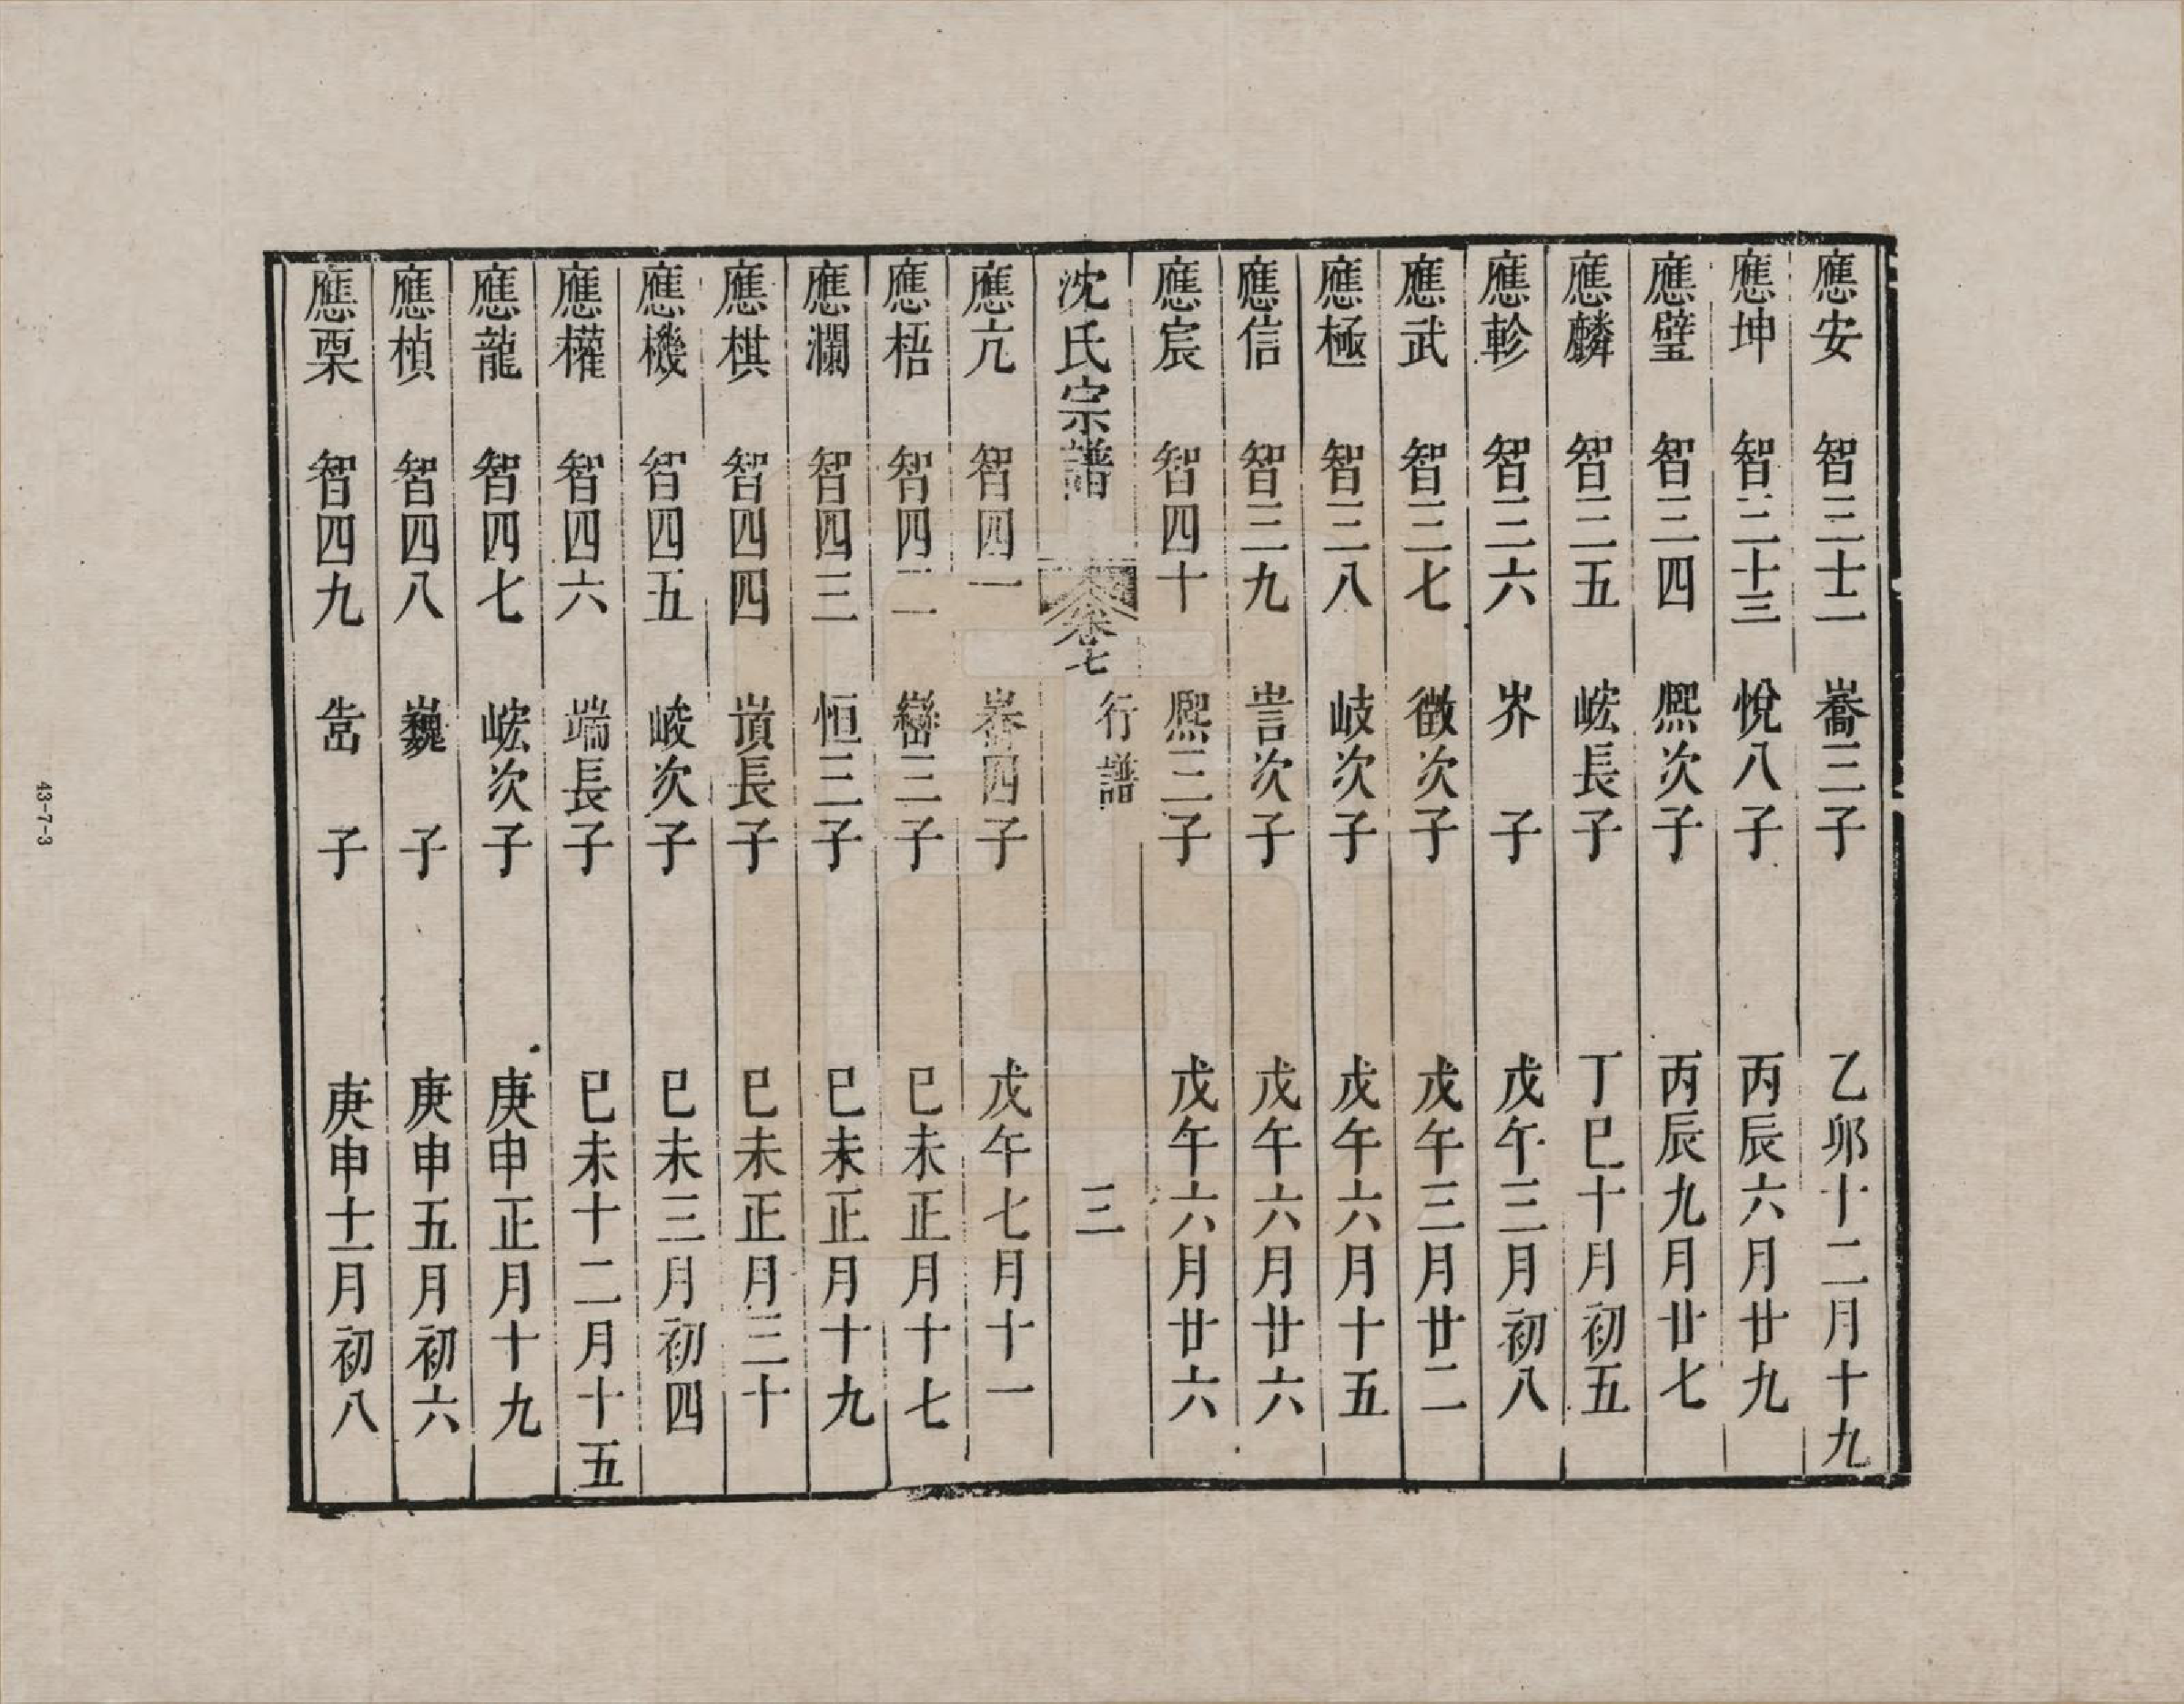 應安 智三十二 嵩三子 乙卯十二月十九
應坤 智三十三 悅八子 丙辰六月廿九
應璧 智三四 熈次子 丙辰九月廿七
應麟 智三五 峵長子 丁巳十月初五
應軫 智三六 岕 子 戊午三月初八
應武 智三七 徵次子 戊午三月廿二
應極 智三八 岐次子 戊午六月十五
應信 智三九 訔次子 戊午六月廿六
應宸 智四十 熈三子 戊午六月廿六
沈氏宗譜 卷七 行譜 三
應亢 智四一 四子 戊午七月十一
應梧 智四二 巒三子 巳未正月十七
應瀾 智四三 恒三子 巳未正月十九
應棋 智四四 長子 巳未正月三十
應機 智四五 峻次子 巳未三月初四
應權 智四六 端長子 巳未十二月十五
應龍 智四七 峵次子 庚申正月十九
應楨 智四八 巍 子 庚申五月初六
應栗 智四九 峕 子 庚申十一月初八
43-7-3